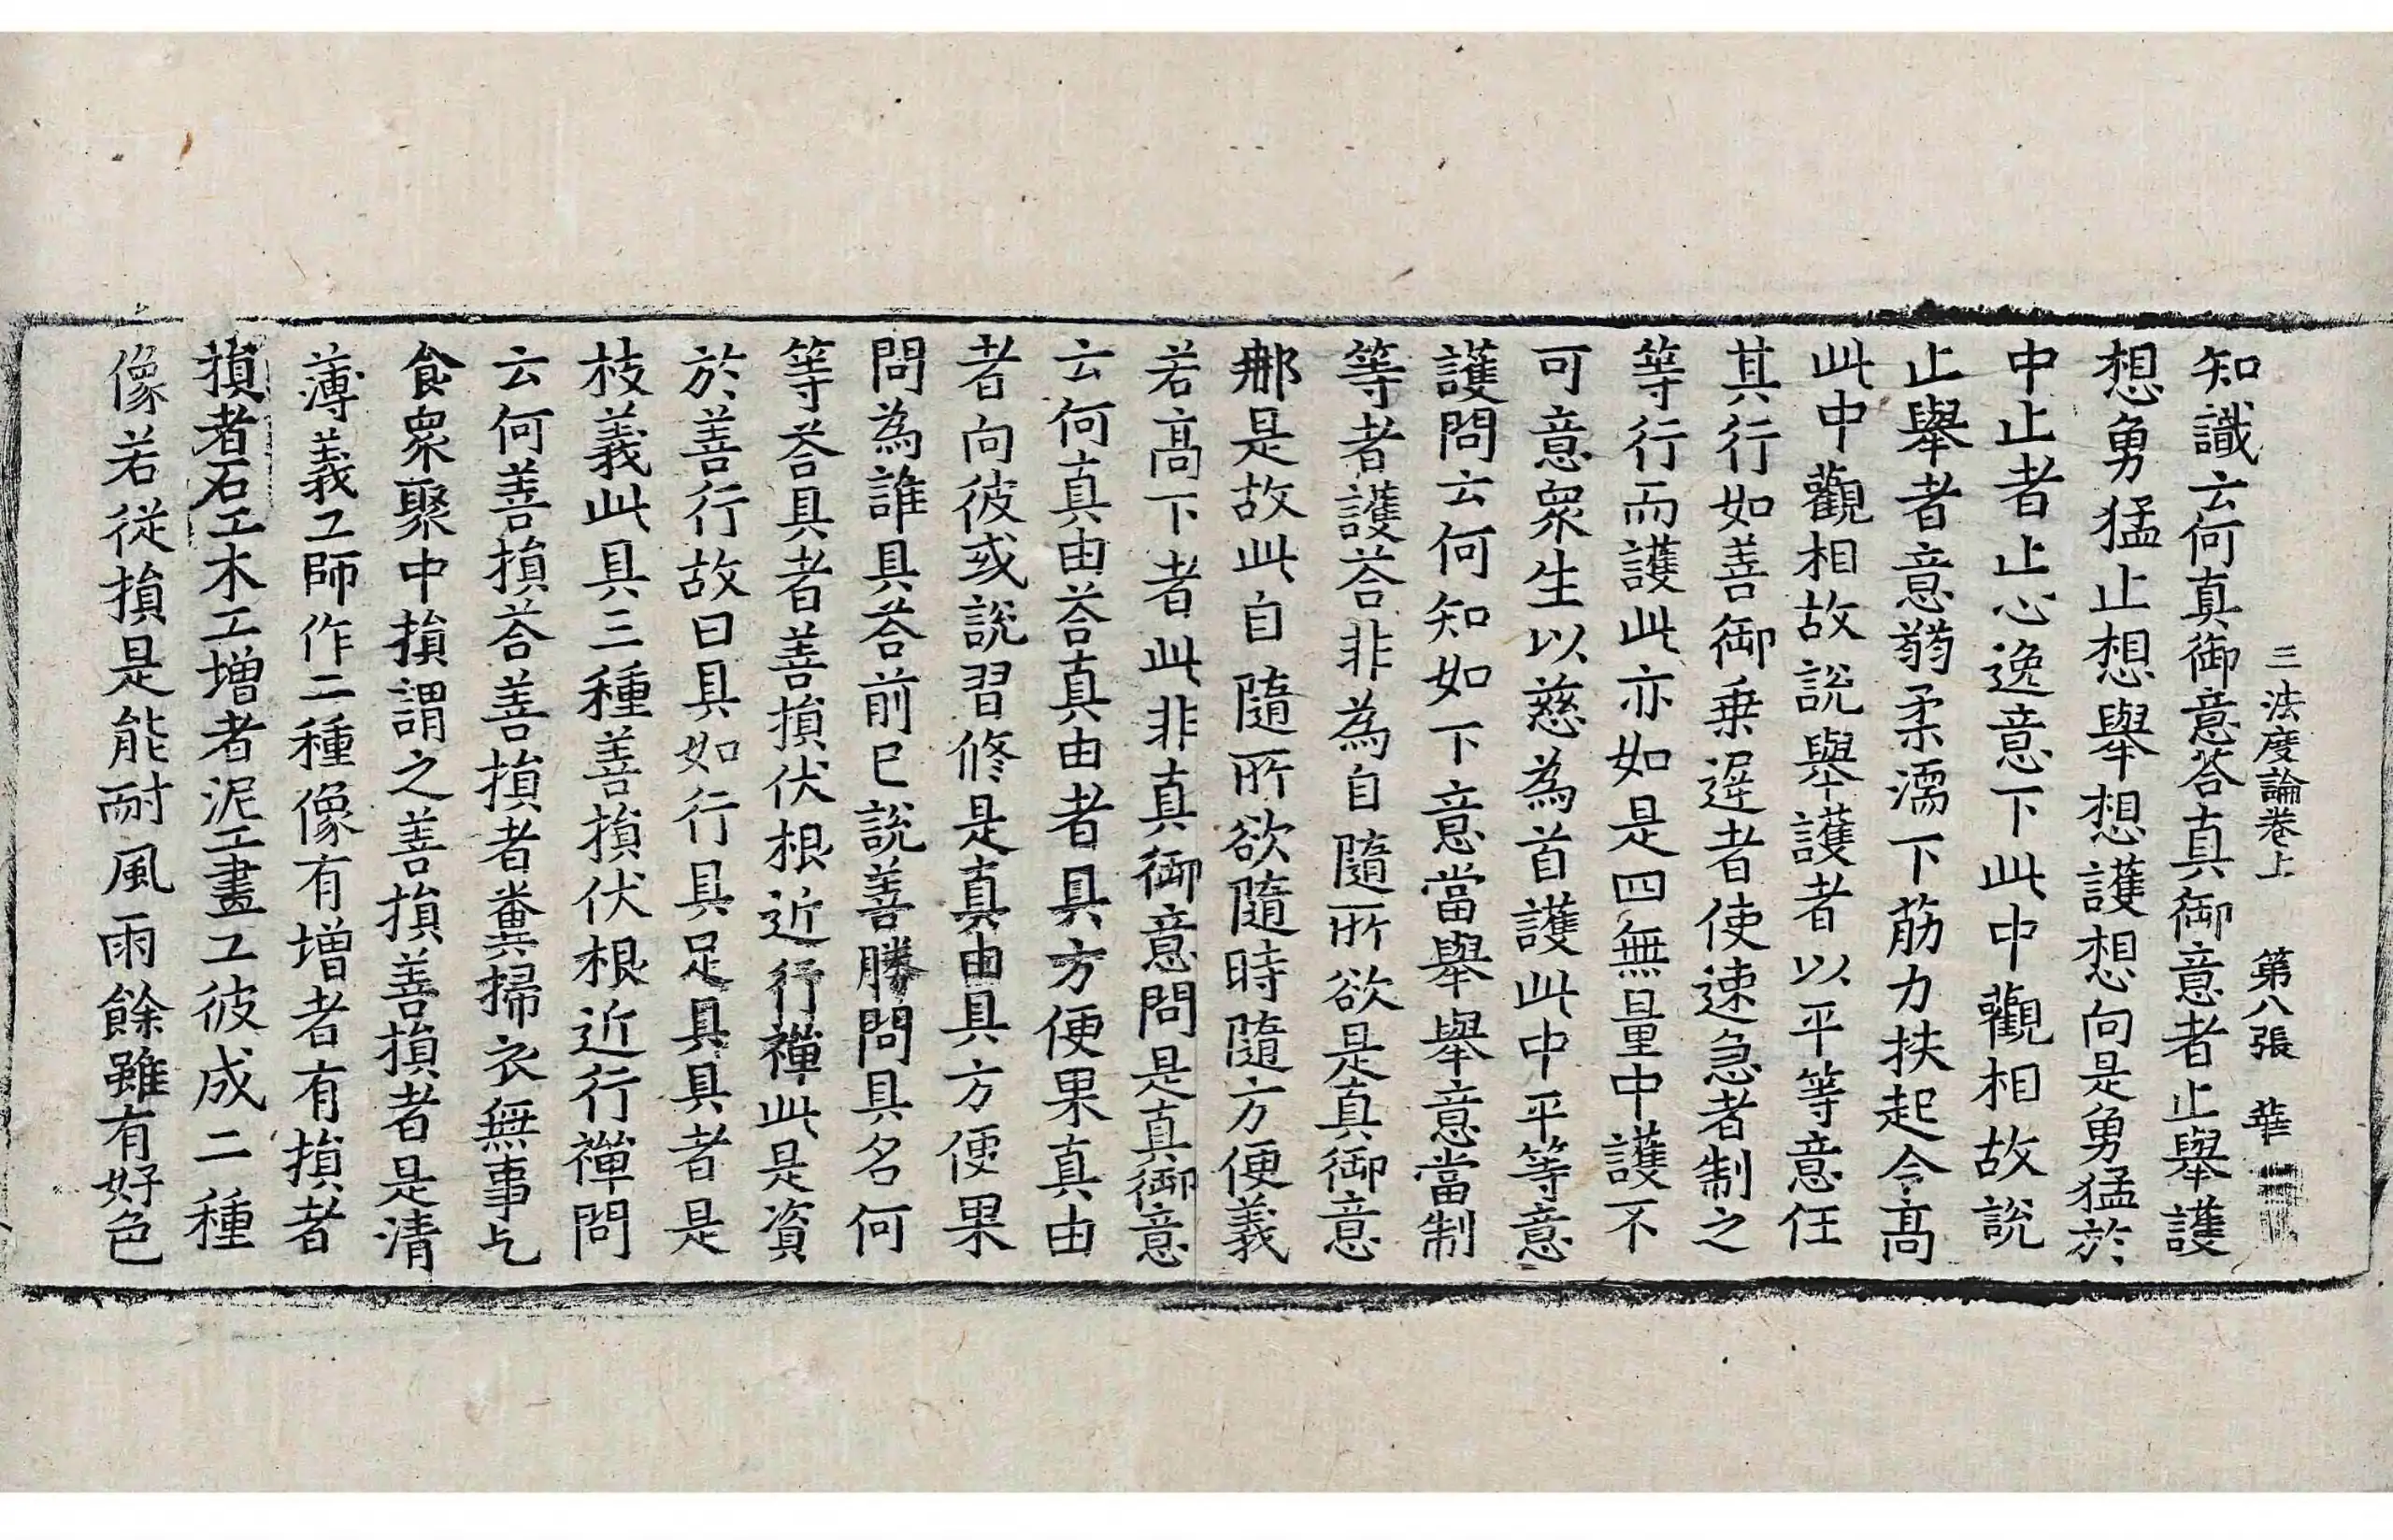 三法度論卷上　第八張　華
知識云何真御意荅真御意者止舉護
想勇猛止想舉想護想向是勇猛於
中止者止心逸意下此中觀相故說
止舉者意弱柔濡下筋力扶起令高
此中觀相故說舉護者以平等意任
其行如善御乗遲者使速急者制之
等行而護此亦如是四無量中護不
可意衆生以慈為首護此中平等意
護問云何知如下意當舉舉意當制
等者護荅非為自隨所欲是真御意
耶是故此自隨所欲隨時隨方便義
若高下者此非真御意問是真御意
云何真由荅真由者具方便果真由
者向彼或說習修是真由具方便果
問為誰具荅前已說善勝問具名何
等荅具者善損伏根近行禪此是資
於善行故曰具如行具足具具者是
枝義此具三種善損伏根近行禪問
云何善損荅善損者糞掃衣無事乞
食衆聚中損謂之善損善損者是清
薄義工師作二種像有增者有損者
損者石工木工增者泥工畫工彼成二種
像若從損是能耐風雨餘雖有好色